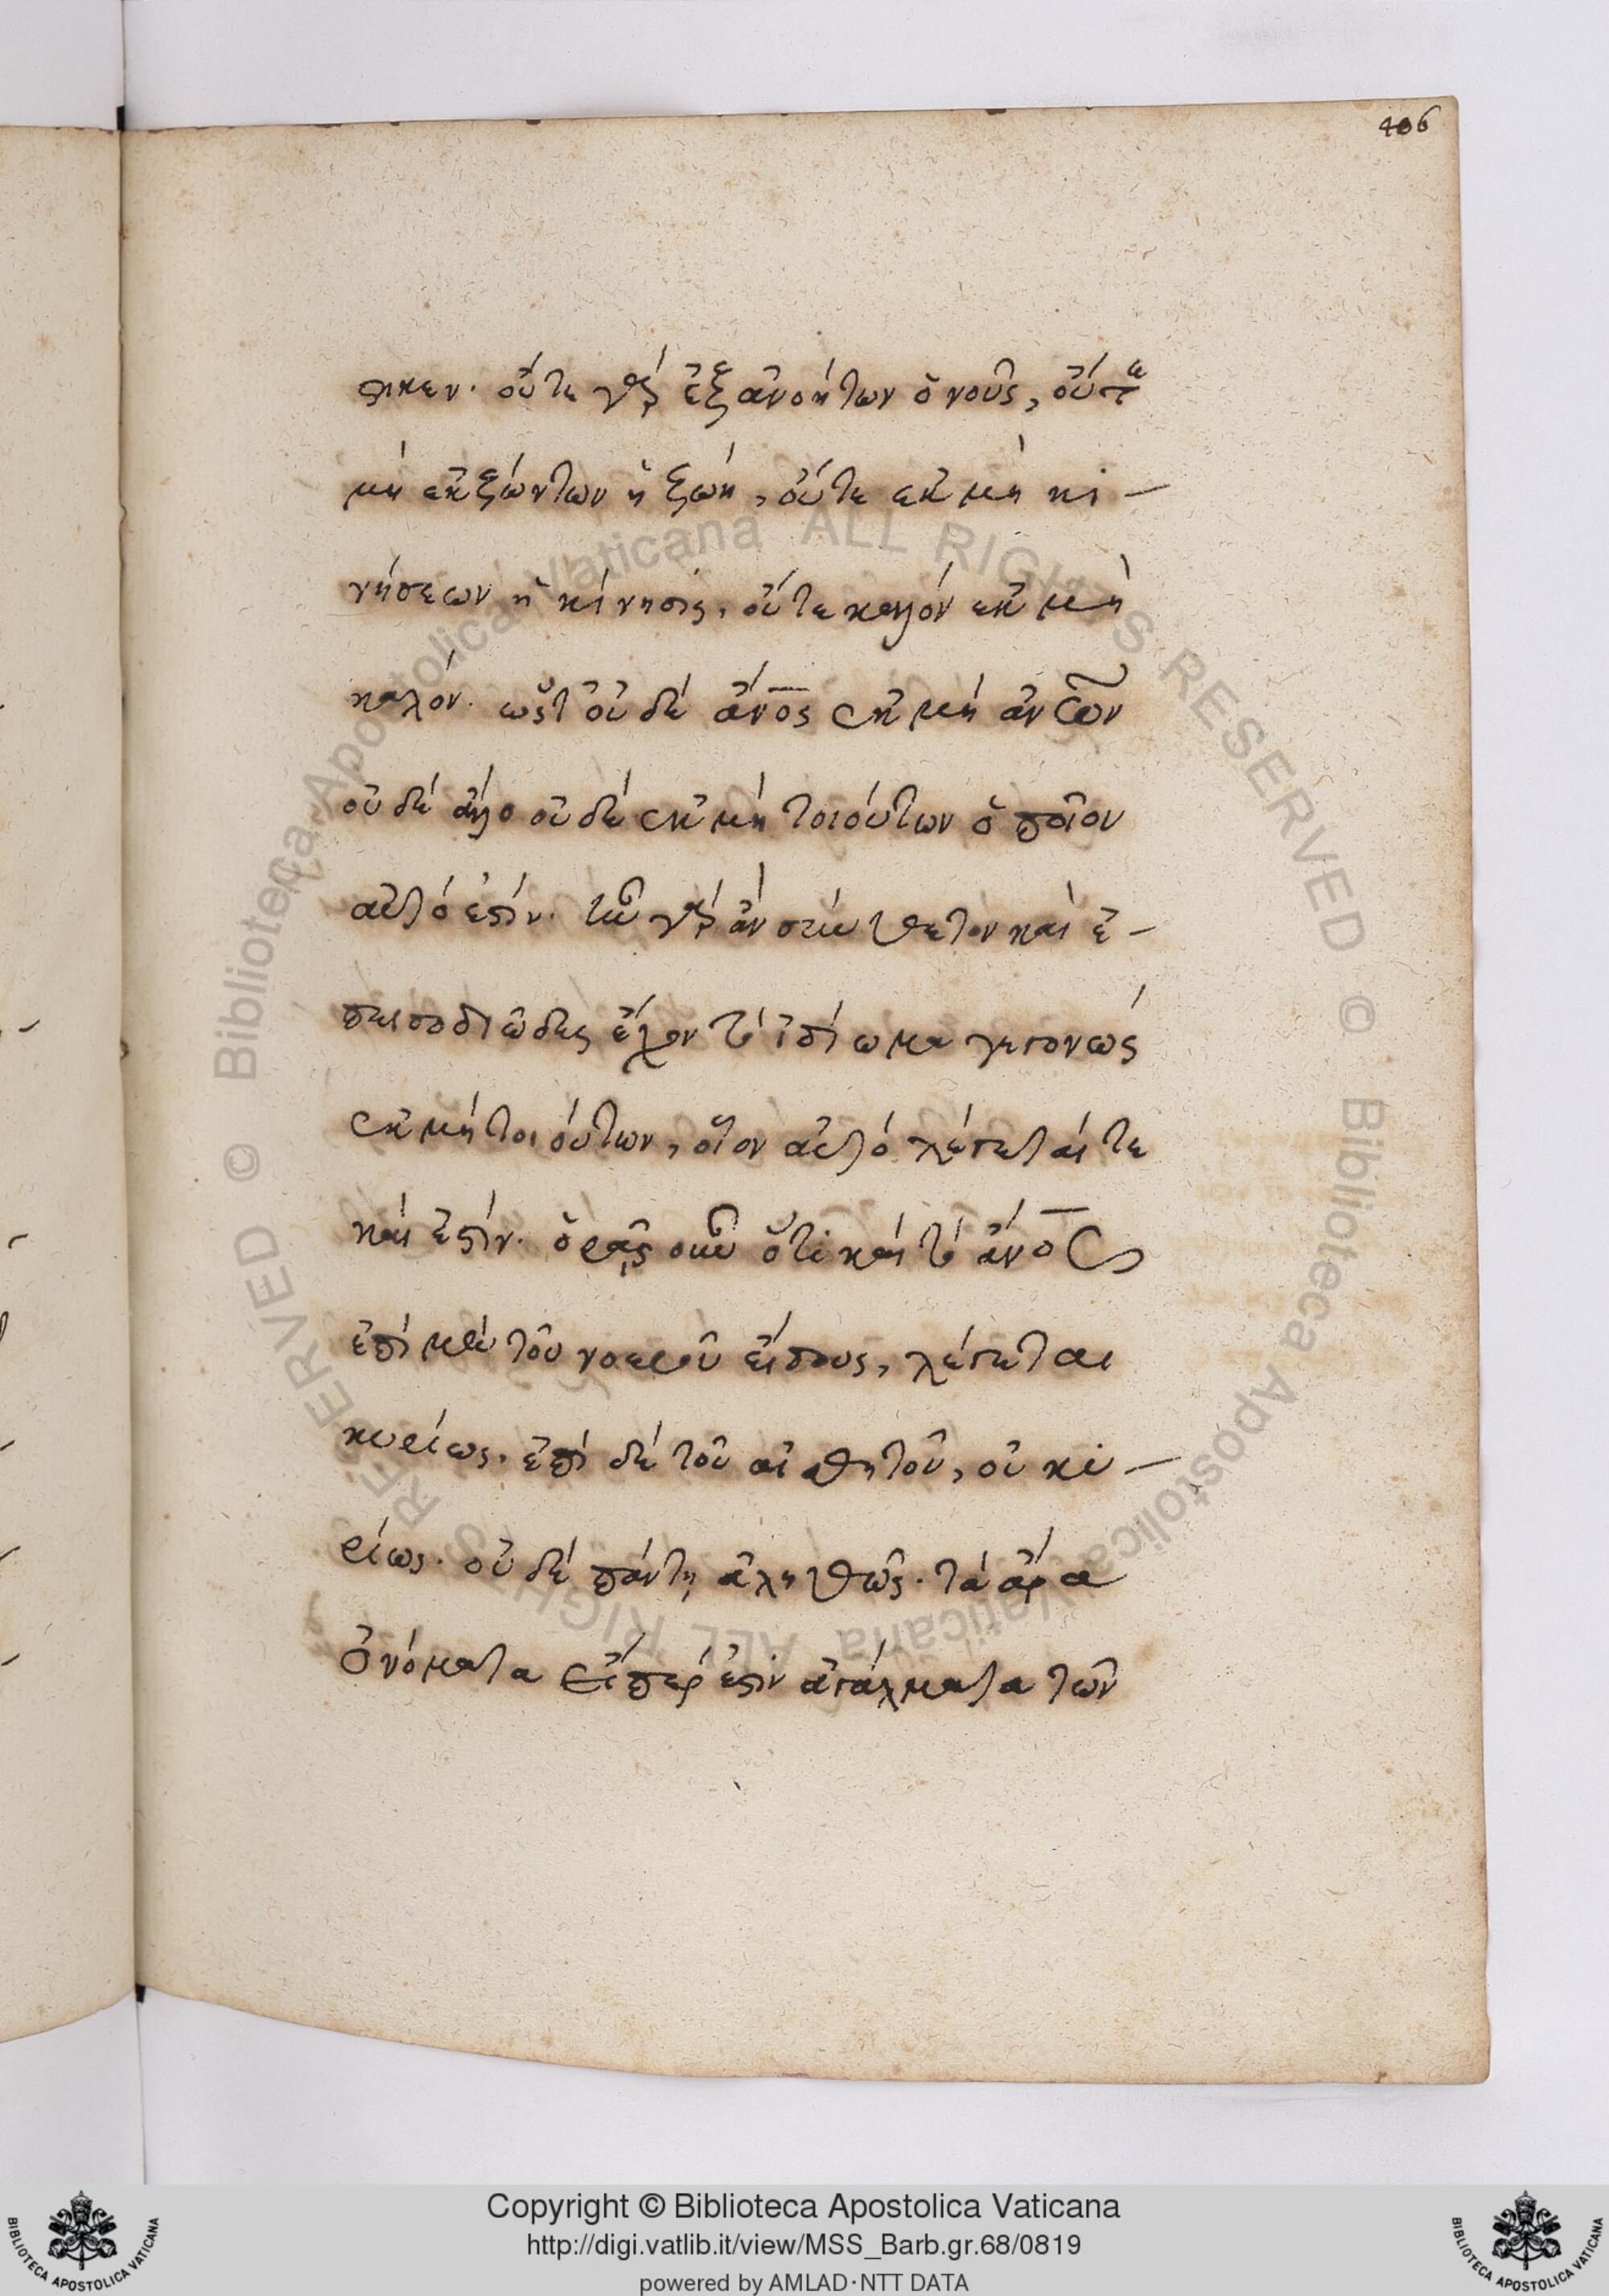 406
στικεν. οὔτε γὰρ ἐξ ἀνοήτων ὁ νοῦς, οὔτε
μὴ ἐκ ζώντων ἡ ζωή, οὔτε ἐκ μὴ κι-
νήσεων ἡ κίνησις, οὔτε καλόν ἐκ μὴ
καλόν. ὥστ οὐδὲ ἄνος ἐκ μὴ ἀνων
οὐδὲ ἄλλο οὐδὲ ἐκ μὴ τοιούτων ὁποῖον
αὐτό ἐστίν. ἦν γὰρ ἂν σύνθετον καὶ ἐ-
πεισοδιῶδες ἔχον τὸ ἰδίωμα γεγονὼς
ἐκ μὴ τοιούτων, οἷον αὐτό λέγεταί τε
καὶ ἐστίν. ὁρᾷς οὖν ὅτι καὶ τὸ ἄνος
ἐπὶ μὲν τοῦ νοεροῦ εἴδους, λέγεται
κυρίως. ἐπὶ δὲ τοῦ αἰσθητοῦ, οὐ κυ-
ρίως. οὐδὲ πάντῃ ἀληθῶς. τὰ ἄρα
ὀνόματα εἴπερ ἐστιν ἀγάλματα τῶν
© Biblioteca Apostolica Vaticana ALL RIGHTS RESERVED © Biblioteca Apostolica Vaticana ALL RIGHTS RESERVED
Copyright © Biblioteca Apostolica Vaticana
http://digi.vatlib.it/view/MSS_Barb.gr.68/0819
powered by AMLAD·NTT DATA
BIBLIOTECA APOSTOLICA VATICANA
BIBLIOTECA APOSTOLICA VATICANA